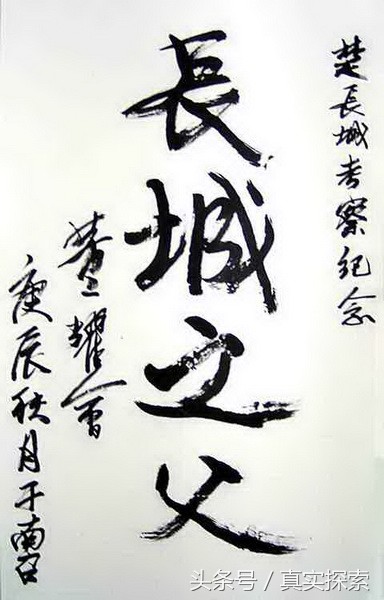 楚長城考察纪念
長城之父
董耀會
庚辰秋月于南召
头条号/真实探索